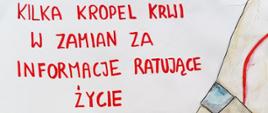 KILKA KROPEL KRWI
W ZAMIAN ZA
INFORMACJE RATUJĄCE
ŻYCIE